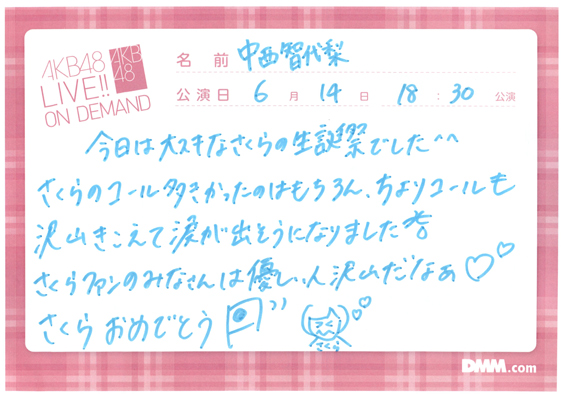 AKB48
LIVE!!
ON DEMAND
AKB
48
名 前 中西智代梨
公演日 6 月 14 日 18 : 30 公演
今日は大スキなさくらの生誕祭でした^^
さくらのコール多きかったのはもちろん、ちよりコールも
沢山きこえて涙が出そうになりました
さくらファンのみなさんは優しい人沢山だなぁ♡♡
さくら おめでとう
さくら
DMM.com